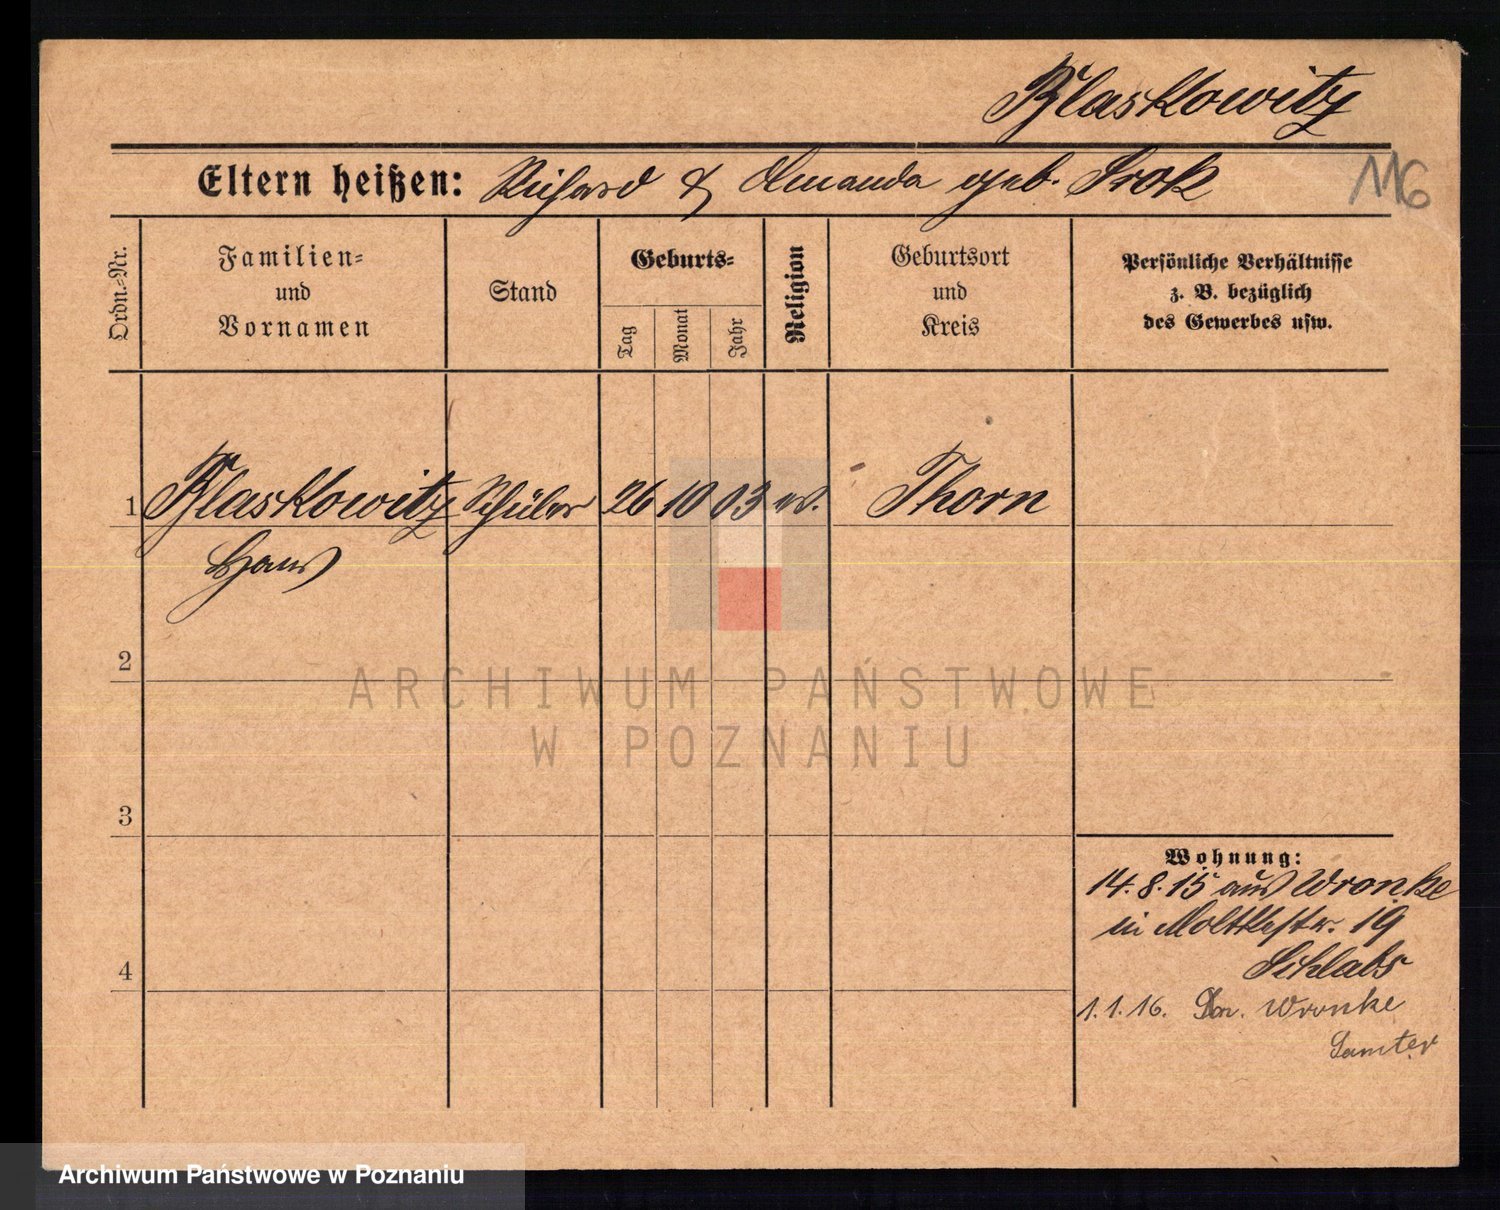 Blaskowitz
Eltern heißen: Richard & Amanda geb. Srok
116
Ordn.-Nr.
Familien-
und
Vornamen
Stand
Geburts-
Tag
Monat
Jahr
Religion
Geburtsort
und
Kreis
Persönliche Verhältnisse
z. B. bezüglich
des Gewerbes usw.
1 Blaskowitz Schüler 26 10 03 ev. Thorn
Hans
2
3
4
Wohnung:
14. 8. 15 aus Wronke
in Moltkestr. 19
Schlabs
1. 1. 16. Wronke
Samter
ARCHIWUM PAŃSTWOWE
W POZNANIU
Archiwum Państwowe w Poznaniu